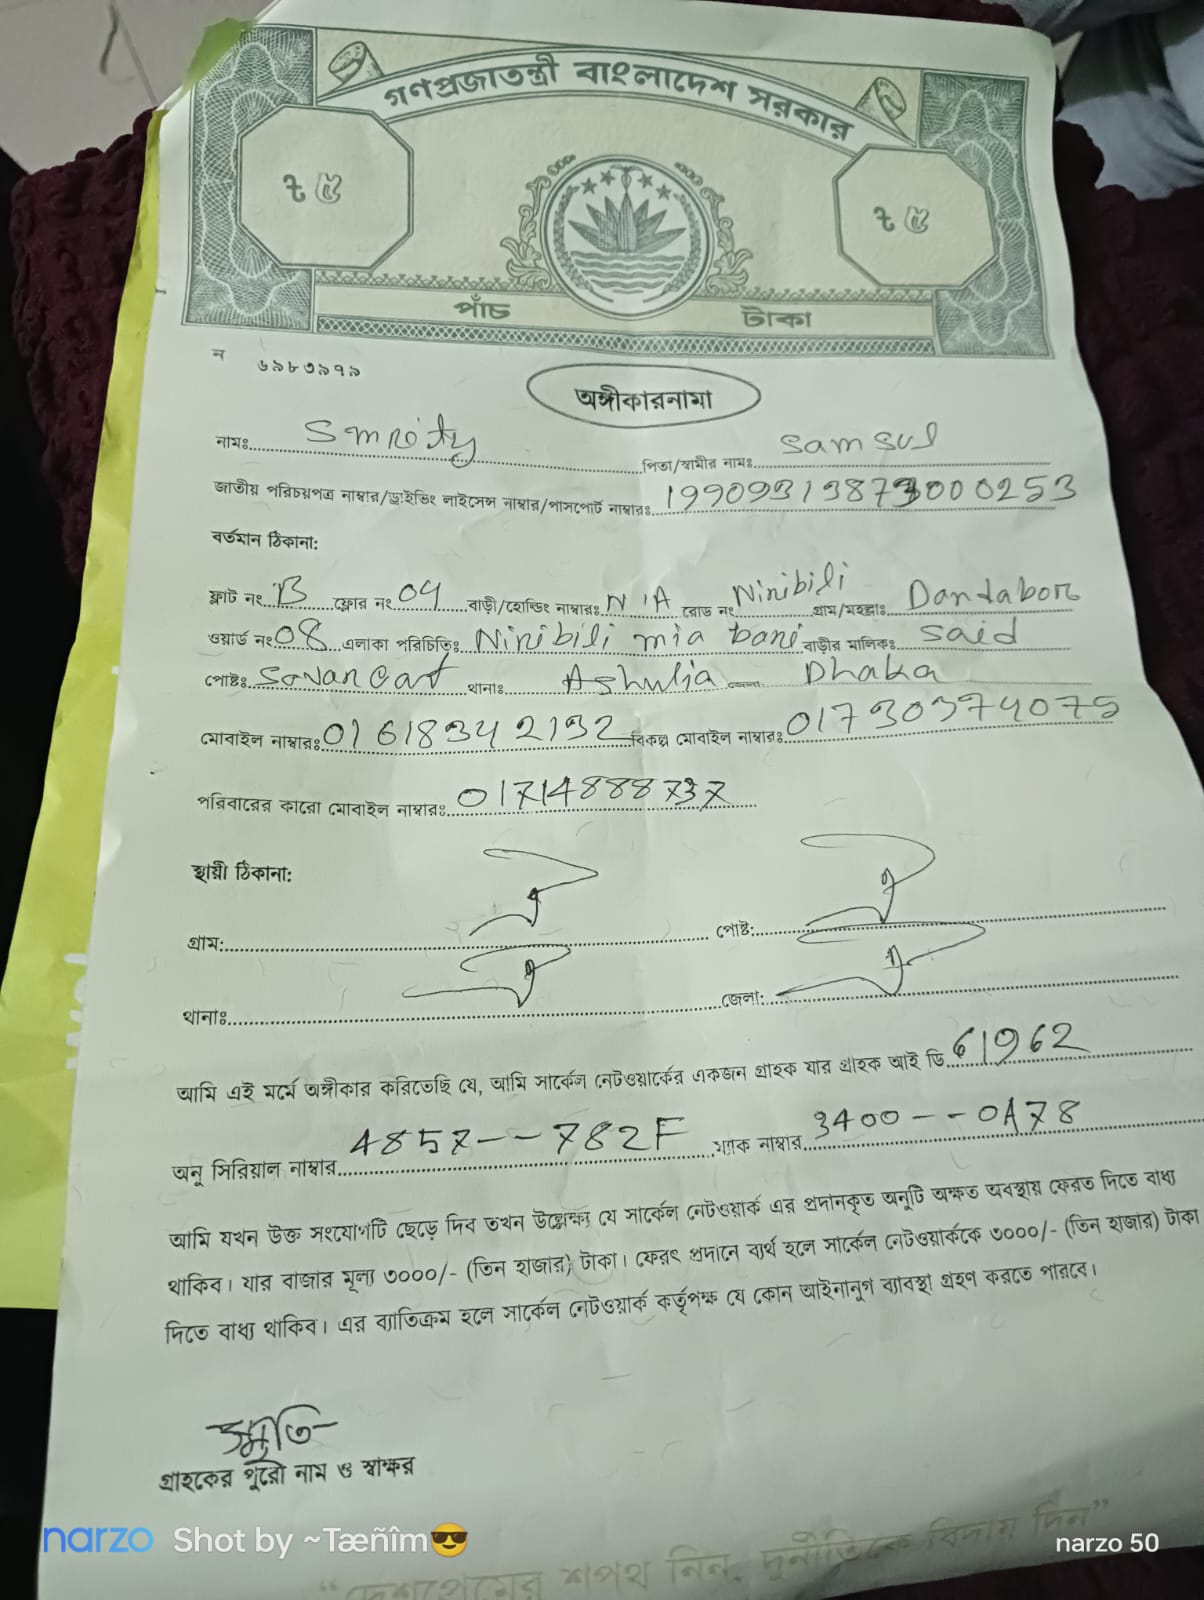 গণপ্রজাতন্ত্রী বাংলাদেশ সরকার
৳ ৫ ৳ ৫
পাঁচ টাকা
ন ৬৯৮৩৯৭৯
অঙ্গীকারনামা
নামঃ Smrity পিতা/স্বামীর নামঃ Samsul
জাতীয় পরিচয়পত্র নাম্বার/ড্রাইভিং লাইসেন্স নাম্বার/পাসপোর্ট নাম্বারঃ 19909313873000253
বর্তমান ঠিকানা:
ফ্লাট নং B ফ্লোর নং 04 বাড়ী/হোল্ডিং নাম্বারঃ N/A রোড নং Niribili গ্রাম/মহল্লাঃ Dandabor
ওয়ার্ড নং 08 এলাকা পরিচিতিঃ Niribili mia bari বাড়ীর মালিকঃ Said
পোষ্টঃ থানাঃ Ashulia জেলা Dhaka
মোবাইল নাম্বারঃ 01618342132 বিকল্প মোবাইল নাম্বারঃ 01730374075
পরিবারের কারো মোবাইল নাম্বারঃ 01714888737
স্থায়ী ঠিকানা:
গ্রাম: পোষ্ট:
থানাঃ জেলা:
আমি এই মর্মে অঙ্গীকার করিতেছি যে, আমি সার্কেল নেটওয়ার্কের একজন গ্রাহক যার গ্রাহক আই ডি 61962
অনু সিরিয়াল নাম্বার 4857--782F ম্যাক নাম্বার 3400--0A78
আমি যখন উক্ত সংযোগটি ছেড়ে দিব তখন উল্লেক্ষ্য যে সার্কেল নেটওয়ার্ক এর প্রদানকৃত অনুটি অক্ষত অবস্থায় ফেরত দিতে বাধ্য
থাকিব। যার বাজার মূল্য ৩০০০/- (তিন হাজার) টাকা। ফেরৎ প্রদানে ব্যর্থ হলে সার্কেল নেটওয়ার্ককে ৩০০০/- (তিন হাজার) টাকা
দিতে বাধ্য থাকিব। এর ব্যাতিক্রম হলে সার্কেল নেটওয়ার্ক কর্তৃপক্ষ যে কোন আইনানুগ ব্যাবস্থা গ্রহণ করতে পারবে।
স্মৃতি
গ্রাহকের পুরো নাম ও স্বাক্ষর
narzo Shot by ~Tæñîm😎 narzo 50
“দেশপ্রেমের শপথ নিন, দুর্নীতিকে বিদায় দিন”